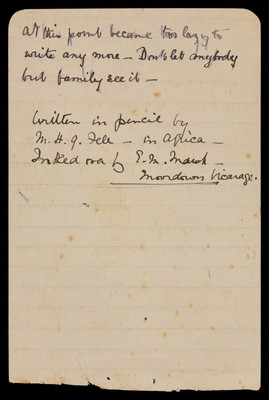 at this point became too lazy to
write any more – Dont let anybody
but family see it –
Written in pencil by
M. H. G. – in Africa –
Inked over by E. M. Marsh –
Moordown Vicarage.